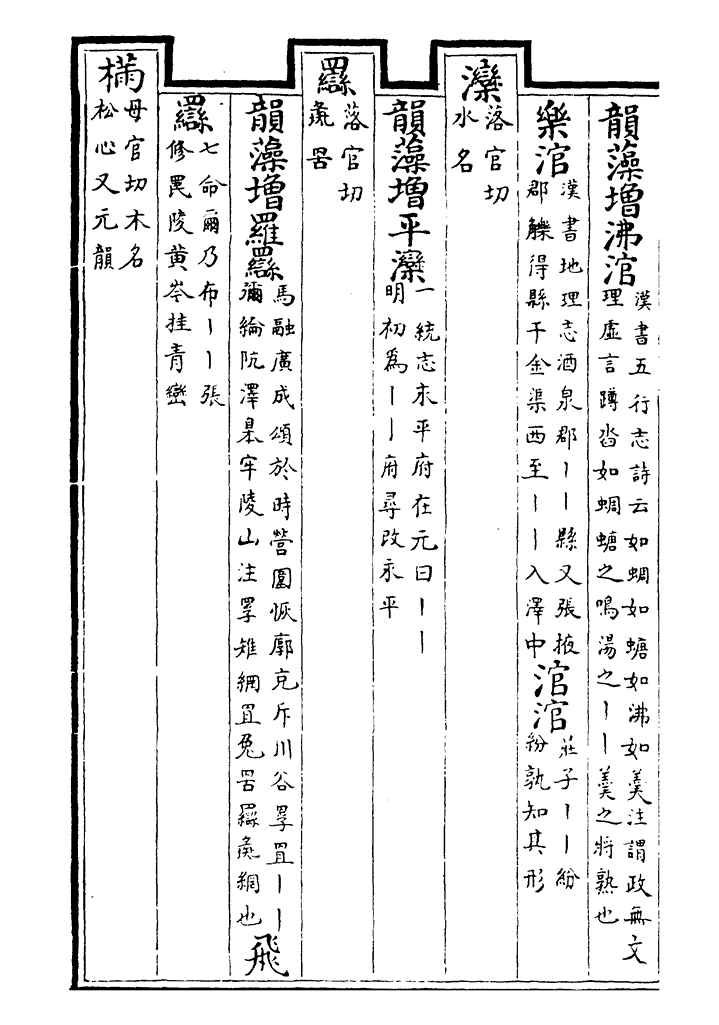 韻藻增沸涫
漢書五行志詩云如蜩如螗如沸如羹注謂政無文
理虛言蹲沓如蜩螗之鳴湯之丨丨羹之將熟也
樂涫
漢書地理志酒泉郡丨丨縣又張掖
郡觻得縣千金渠西至丨丨入澤中
涫涫
莊子丨丨紛
紛孰知其形
灤
落官切
水名
韻藻增平灤
一統志永平府在元曰丨丨
明初為丨丨府尋改永平
羉
落官切
彘罟
韻藻增羅羉
馬融廣成頌於時營圍恢廓充斥川谷罦罝丨丨
彌綸阬澤皋牢陵山注罦雉網罝兔罟羅羉彘網也
飛
羉
七命爾乃布丨丨張
修罠陵黄岑挂青巒
樠
母官切木名
松心又元韻